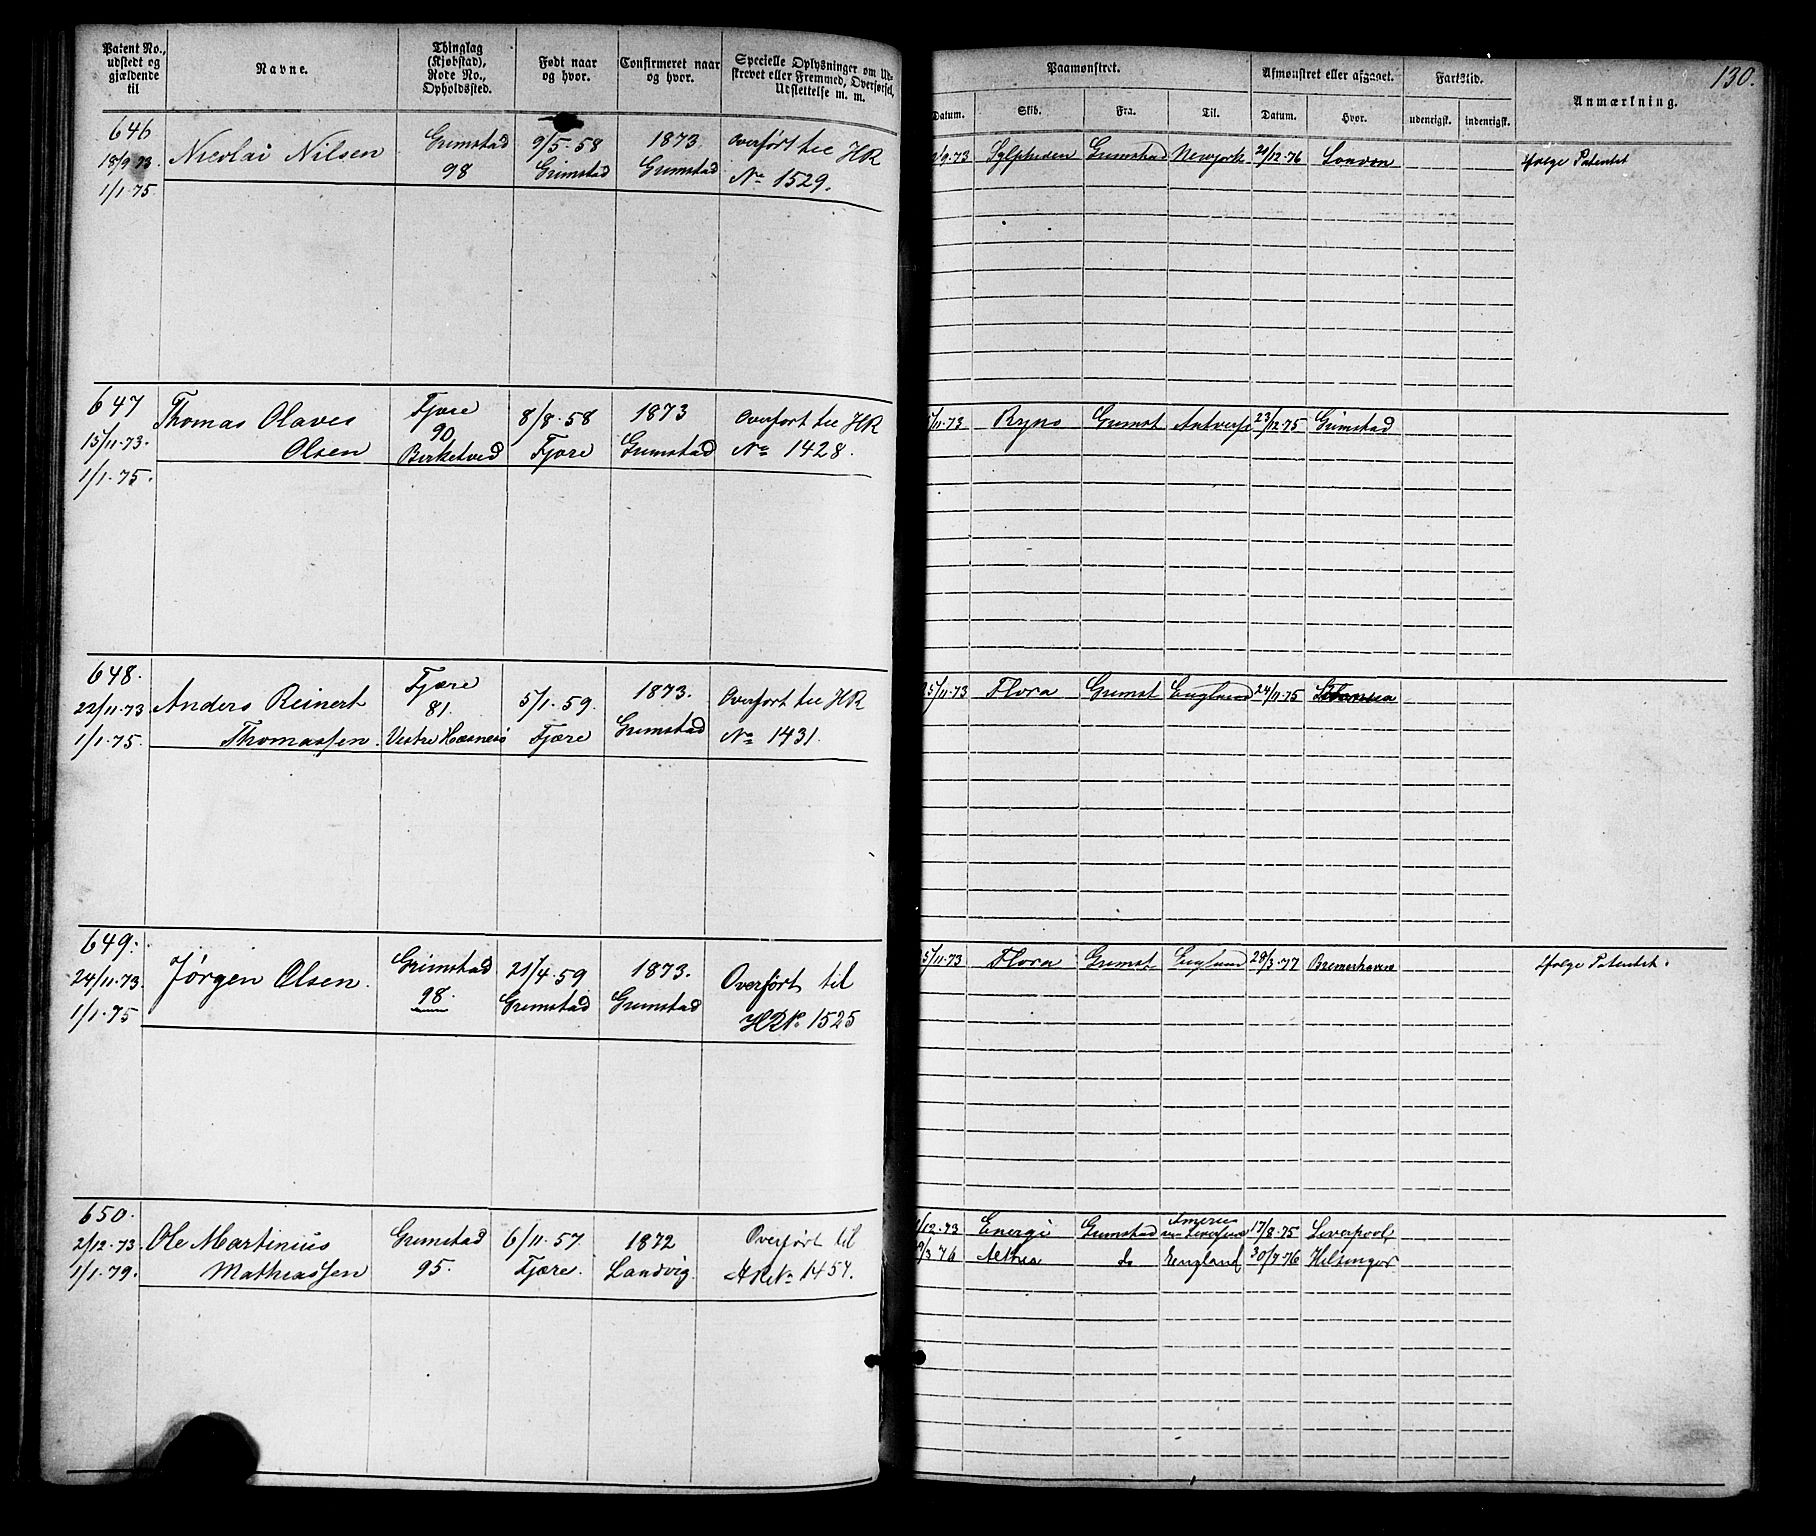 Patent No., udstedt og gjældende til
Navne.
Thinglag (Kjøbstad), Rode No., Opholdssted.
Født naar og hvor.
Confirmeret naar og hvor.
Specielle Oplysninger om Udskrevet eller Fremmed, Overførsel, Udslettelse m. m.
Paamønstret.
Afmønstret eller afgaaet.
Fartstid.
Anmærkning.
130.
Datum.
Skib.
Fra.
Til.
Datum.
Hvor.
udenrigsk.
indenrigsk.
646
18/9 73
1/1. 75
Nicolai Nilsen
Grimstad
98
9/5. 58
Grimstad
1873.
Grimstad
Overført til HR
No 1529.
9.73
Sylphiden
Grimstad
Newyork
20/12.76
London
Ifølge Patentet
647
15/11.73.
1/1.75.
Thomas Olaves
Olsen
Fjære
90
Birketved
8/8.58
Fjære
1873
Grimstad
Overført til HR
No 1428.
11.73
Ryno
Grimst
23/12.75
Grimstad
648.
22/11.73
1/1.75.
Anders Reinert
Thomassen.
Fjære
81.
Vestre Hæsnes
5/1.59.
Fjære
1873.
Grimstad
Overført til HR
No 1431.
25/11.73
Flora
Grimst
England
24/11.75
649.
24/11.73.
1/1.75
Jørgen Olsen.
Grimstad
98.
21/4.59
Grimstad
1873.
Grimstad
Overført til
HR No 1525
5/11.73
Flora
Grimst
England
28/3.77
Bremerhaven
Ifølge Patentet.
650.
2/12.73
1/1.79.
Ole Martinius
Mathiassen
Grimstad
95.
6/11.57
Fjære.
1872
Landvig
Overført til
HR No 1457.
12.73
Energi
Grimstad
17/8.75
Liverpool
3.76
Althea
do
England
30/9.76
Helsingør